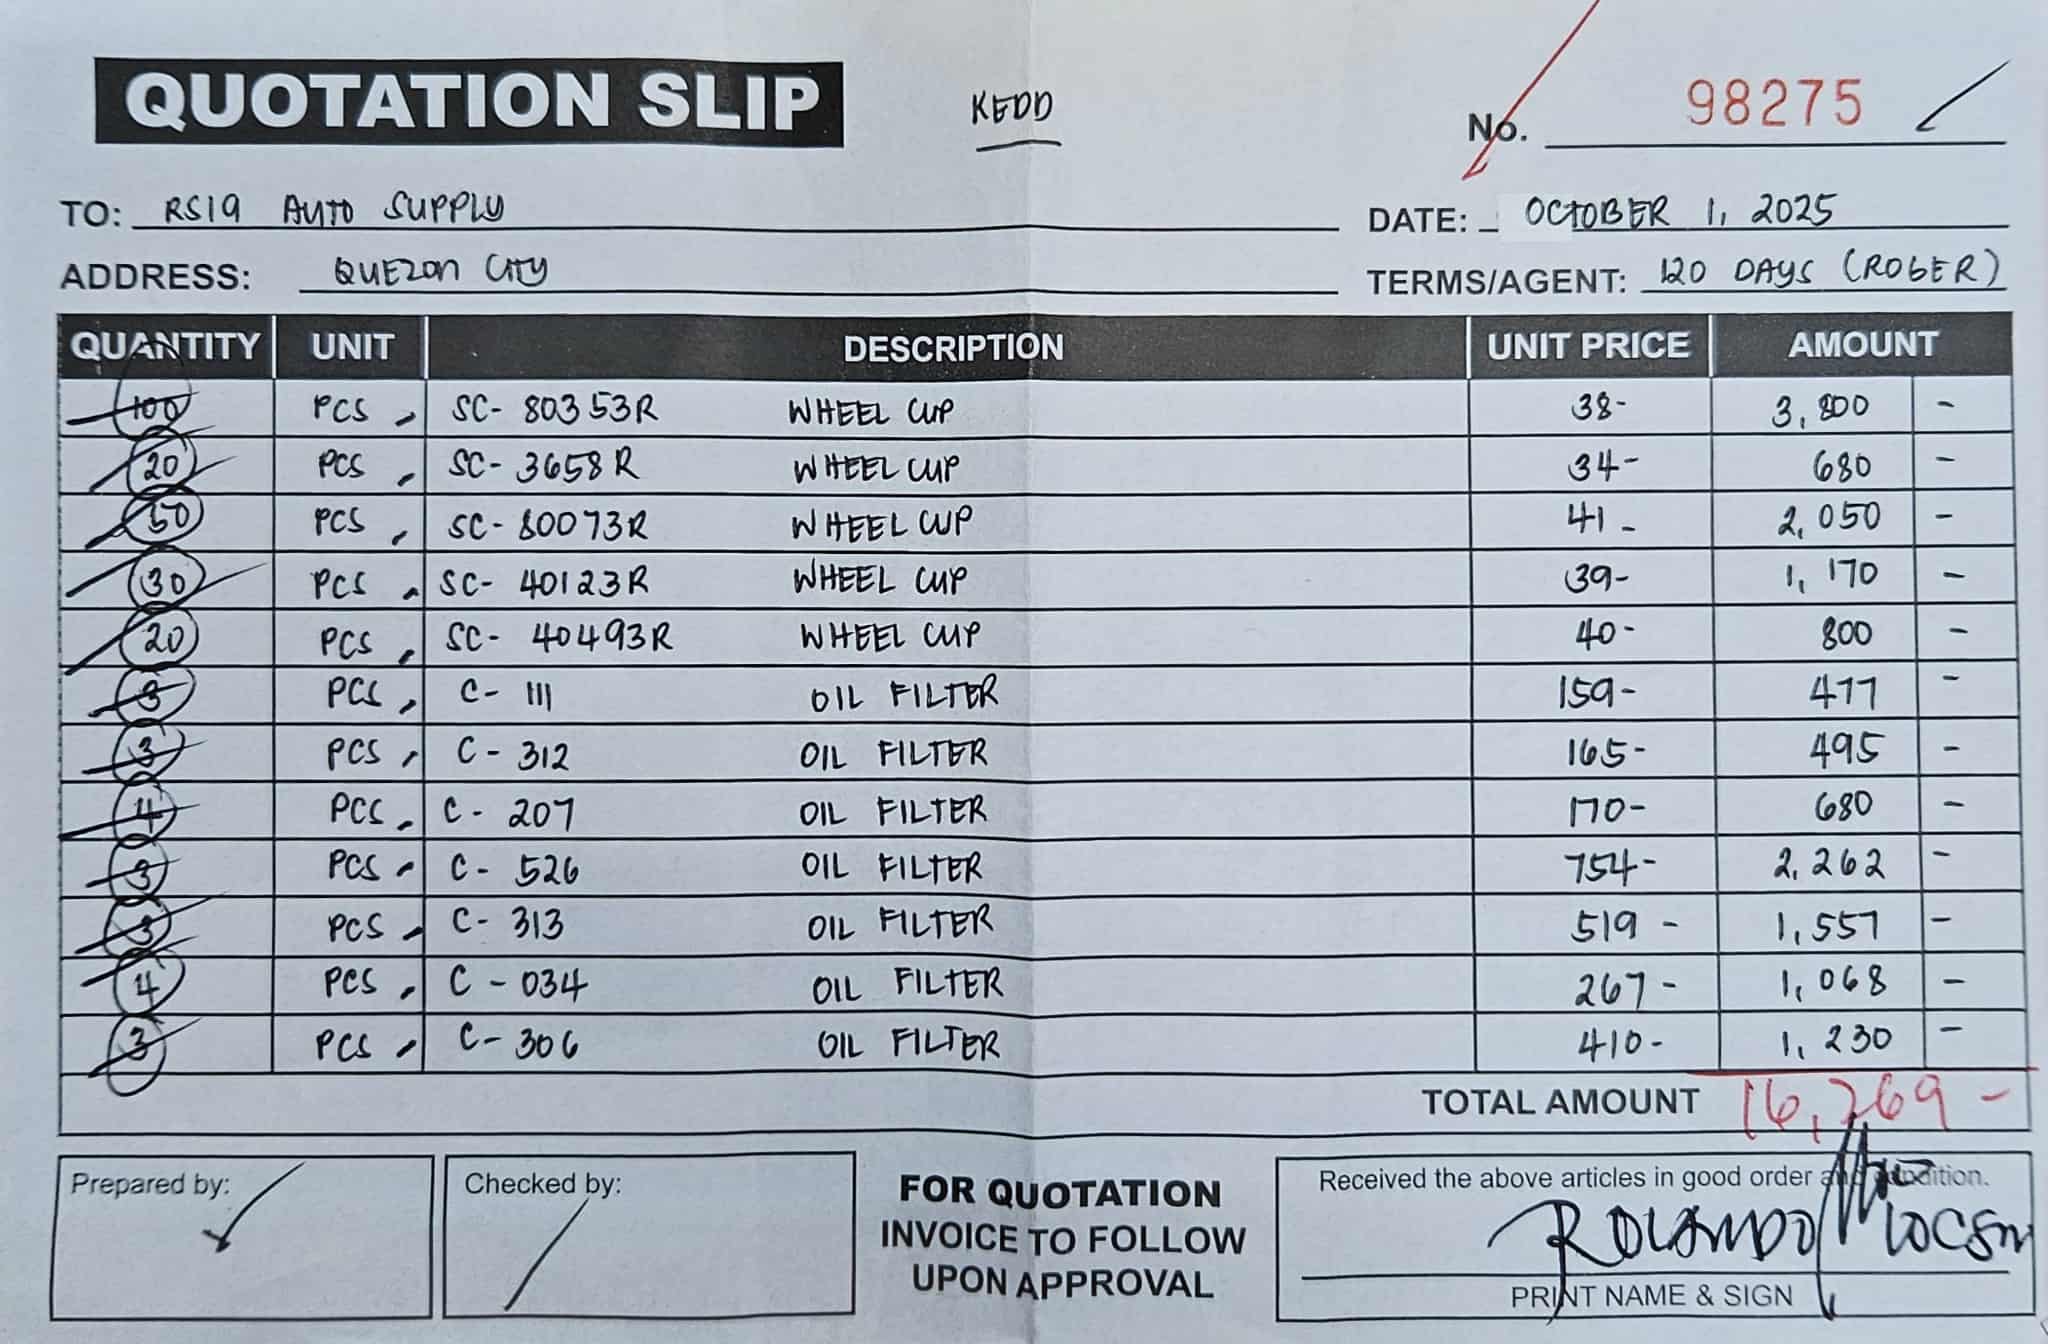 QUOTATION SLIP
KEDD
No. 98275
TO: RS19 AUTO SUPPLY
DATE: OCTOBER 1, 2025
ADDRESS: QUEZON CITY
TERMS/AGENT: 120 DAYS (ROGER)
QUANTITY UNIT DESCRIPTION UNIT PRICE AMOUNT
100 PCS SC- 80353R WHEEL CUP 38- 3,800 -
20 PCS SC- 3658R WHEEL CUP 34- 680 -
50 PCS SC- 80073R WHEEL CUP 41- 2,050 -
30 PCS SC- 40123R WHEEL CUP 39- 1,170 -
20 PCS SC- 40493R WHEEL CUP 40- 800 -
3 PCS C- 111 OIL FILTER 159- 477 -
3 PCS C- 312 OIL FILTER 165- 495 -
4 PCS C- 207 OIL FILTER 170- 680 -
3 PCS C- 526 OIL FILTER 754- 2,262 -
3 PCS C- 313 OIL FILTER 519- 1,557 -
4 PCS C- 034 OIL FILTER 267- 1,068 -
3 PCS C- 306 OIL FILTER 410- 1,230 -
TOTAL AMOUNT 16,269-
Prepared by:
Checked by:
FOR QUOTATION
INVOICE TO FOLLOW
UPON APPROVAL
Received the above articles in good order and condition.
ROLANDO LOCSIN
PRINT NAME & SIGN